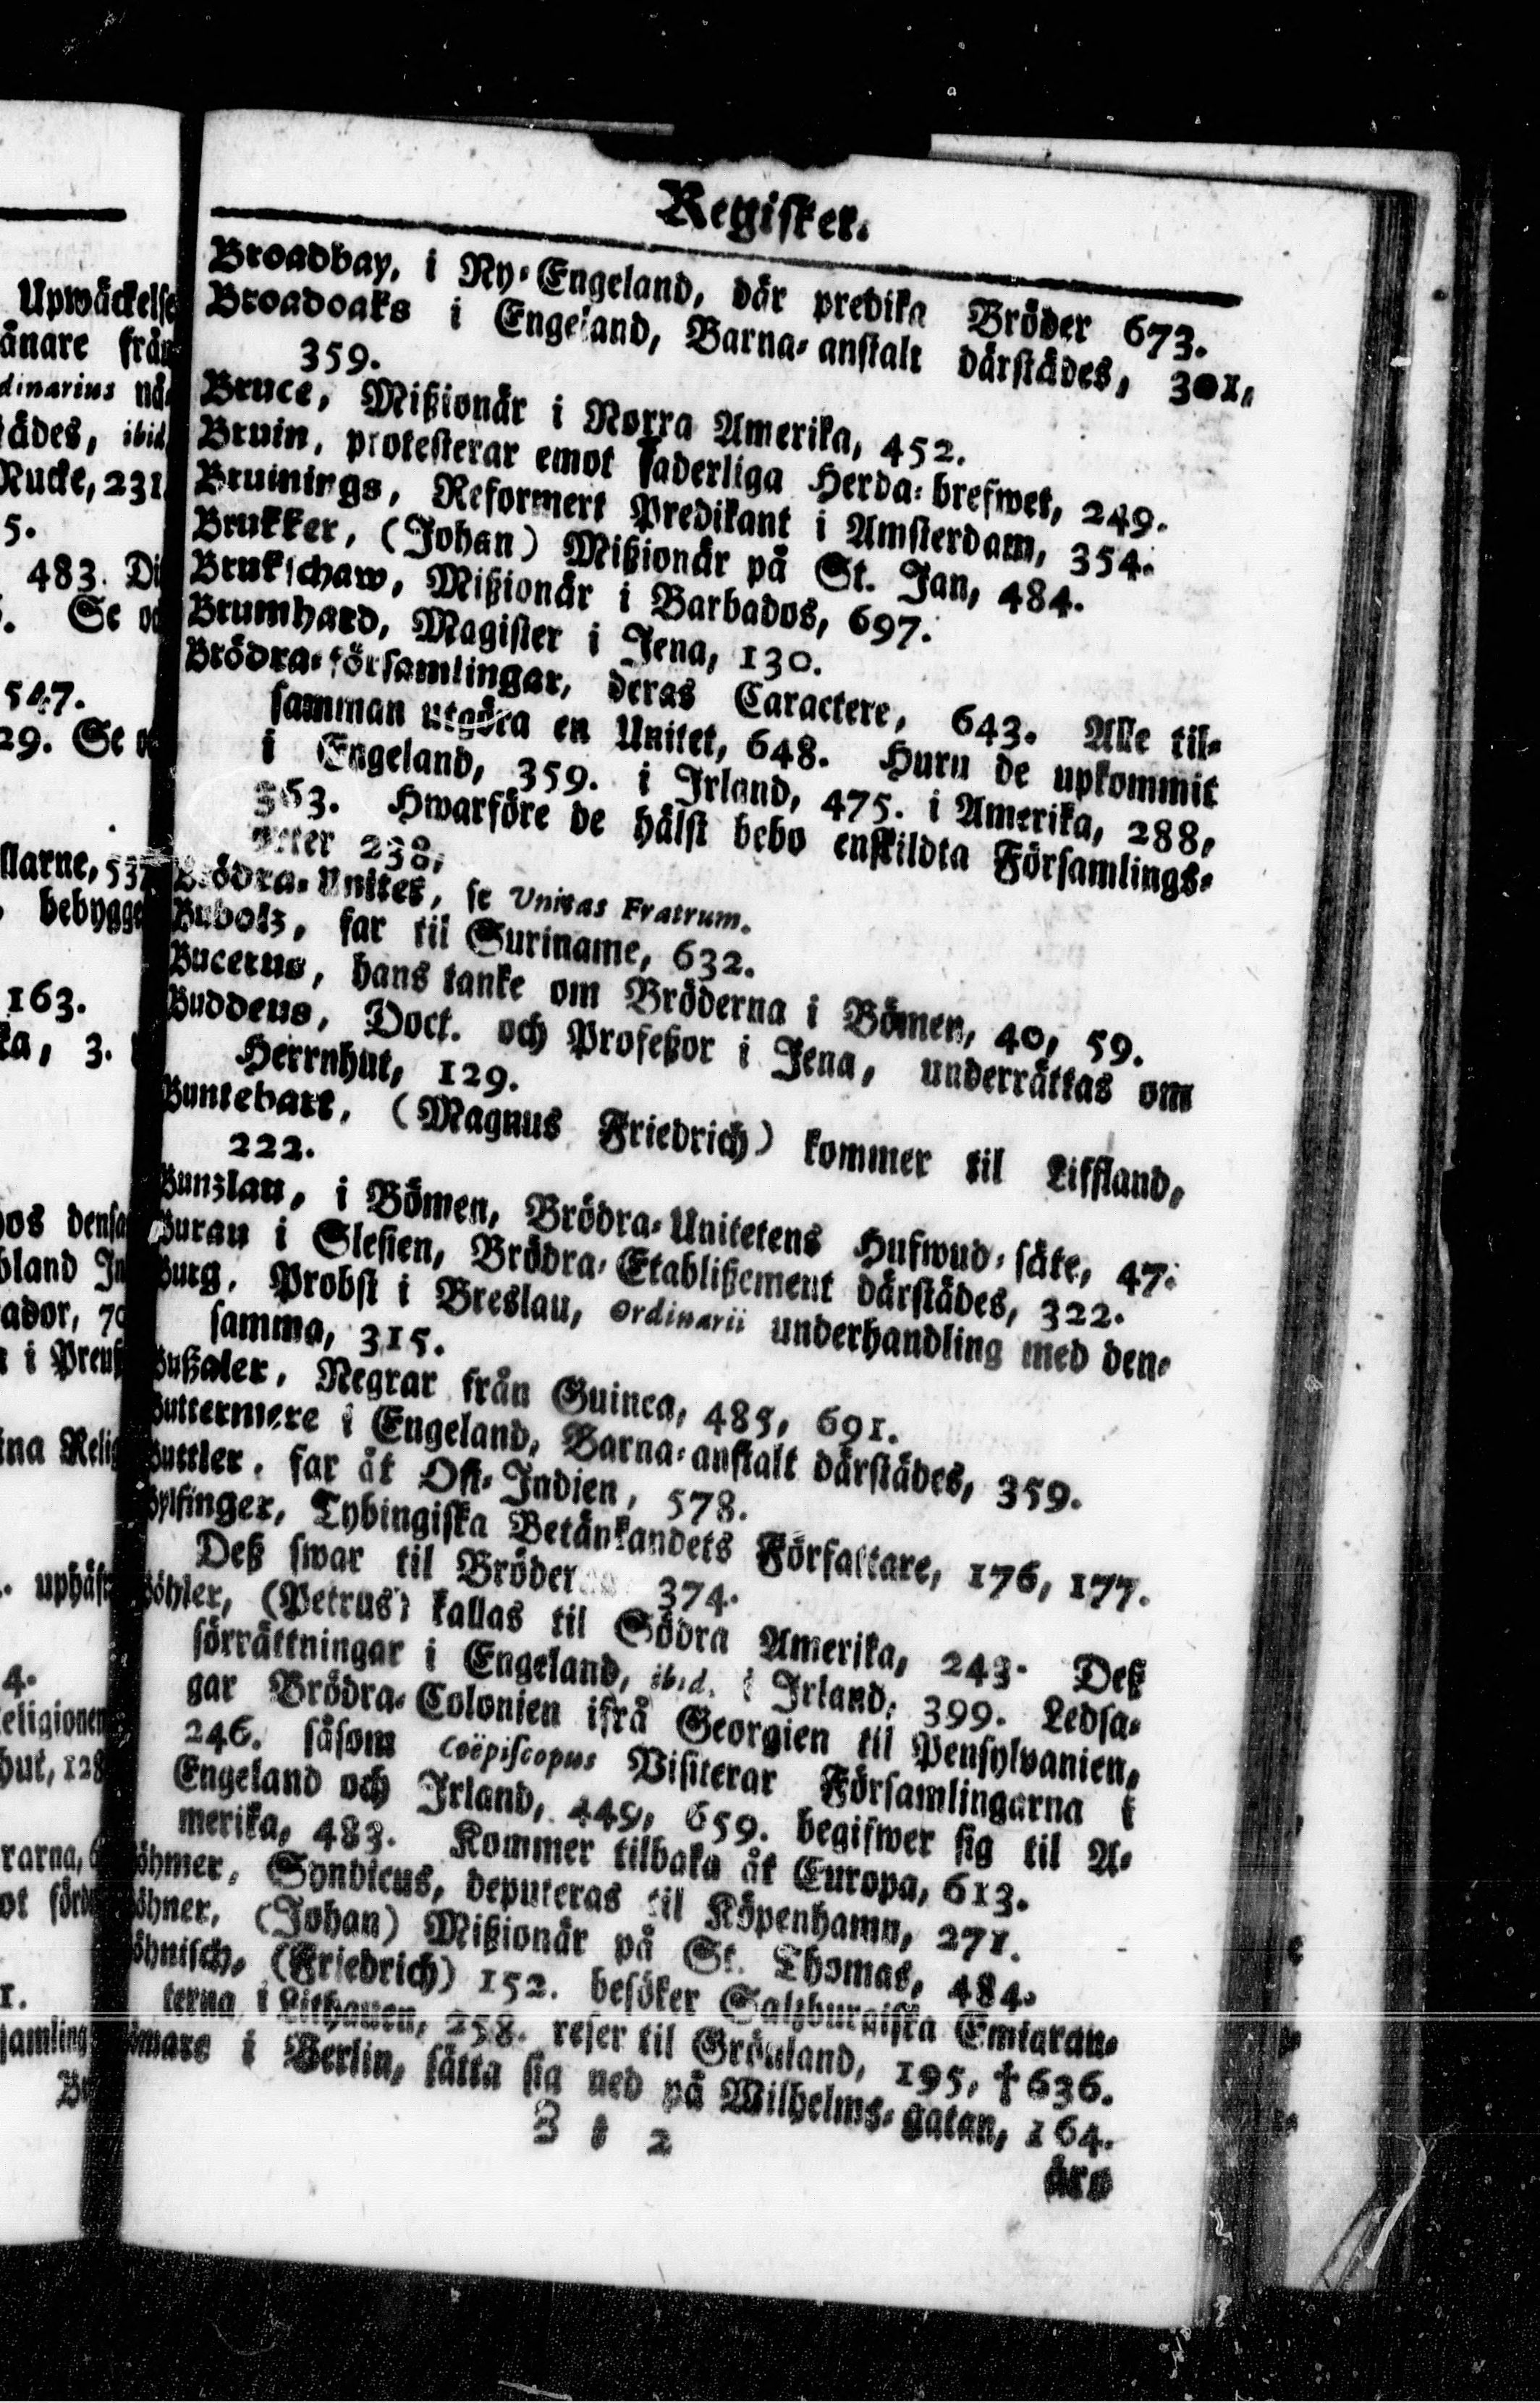 Register.
Broadbay, i Ny-Engeland, där predika Bröder 673.
Broadoaks i Engeland, Barna-anstalt därstädes, 301,
359.
Bruce, Mißionär i Norra Amerika, 452.
Bruin, protesterar emot faderliga Herda-brefwet, 249.
Bruinings, Reformert Predikant i Amsterdam, 354.
Brukker, (Johan) Mißionär på St. Jan, 484.
Brukschaw, Mißionär i Barbados, 697.
Brumhard, Magister i Jena, 130.
Brödra-församlingar, deras Caractere, 643. Alle til-
samman utgöra en Unitet, 648. Huru de upkommit
i Engeland, 359. i Irland, 475. i Amerika, 288,
363. Hwarföre de hälst bebo enskildta Församlings-
orter 238,
Brödra-Unitet, se Unitas Fratrum.
Buholz, far til Suriname, 632.
Bucerus, hans tanke om Bröderna i Bömen, 40, 59.
Buddeus, Doct. och Profeßor i Jena, underrättas om
Herrnhut, 129.
Buntebart, (Magnus Friedrich) kommer til Liffland,
222.
Bunzlau, i Bömen, Brödra-Unitetens Hufwud-säte, 47.
Burau i Slesien, Brödra-Etablißement därstädes, 322.
Burg, Probst i Breslau, Ordinarii underhandling med den-
samma, 315.
Bußaler, Negrar från Guinea, 485, 691.
Buttermere i Engeland, Barna-anstalt därstädes, 359.
Buttler, far åt Ost-Indien, 578.
Bylfinger, Tybingiska Betänkandets Författare, 176, 177.
Deß swar til Bröder 374.
Böhler, (Petrus) kallas til Södra Amerika, 243. Deß
förrättningar i Engeland, ibid. i Irland, 399. Ledsa-
gar Brödra-Colonien ifrå Georgien til Pensylvanien,
246. såsom Coëpiscopus Visiterar Församlingarna i
Engeland och Irland, 449, 659. begifwer sig til A-
merika, 483. Kommer tilbaka åt Europa, 613.
öhmer, Syndicus, deputeras til Köpenhamn, 271.
öhner, (Johan) Mißionär på St. Thomas, 484.
öhnisch, (Friedrich) 152. besöker Saltzburgiska Emigran-
terna i Litthauen, 258. reser til Grönland, 195, † 636.
ömare i Berlin, sätta sig ned på Wilhelms-gatan, 164.
2
äro
Upwäckelse
änare från
dinarius
ädes, ibid.
Rucke, 231
5.
483.
547.
29.
537
bebygge
163.
3.
rarna,
1.